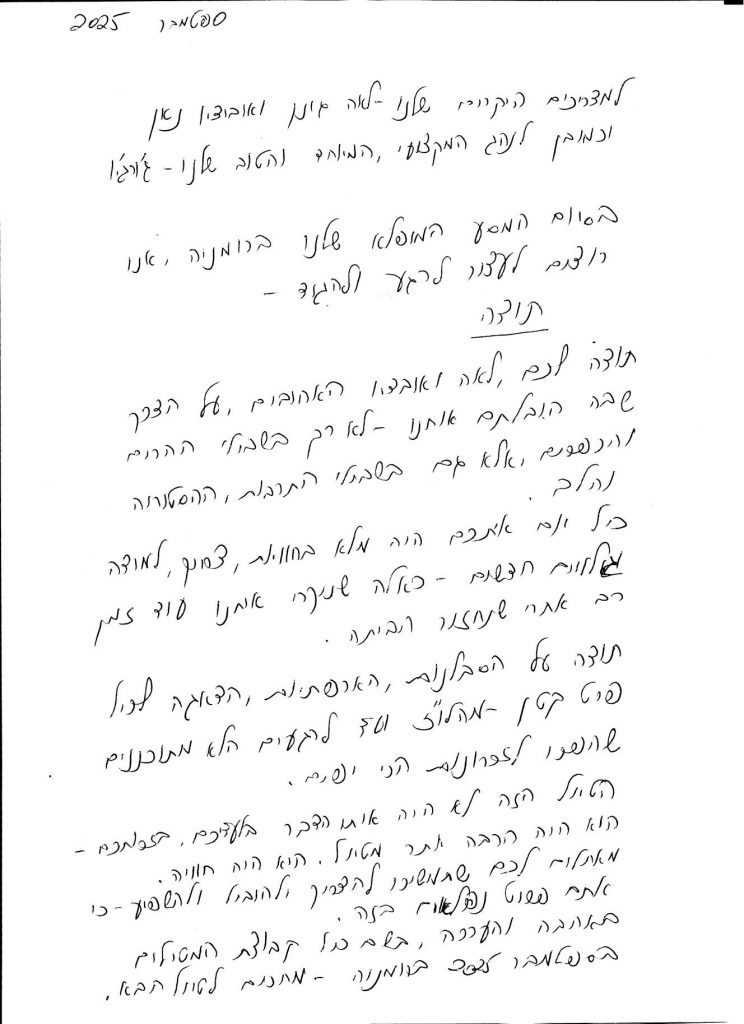 ספטמבר 2025
למדריכים היקרים שלנו - לאה ואובידיו
וכמובן לנהג המקצועי, המיוחד והטוב שלנו - ג'ורג'ו
בסיום המסע המופלא שלנו ברומניה, אנו
רוצים לעצור לרגע ולהגיד -
תודה
תודה לכם, לאה ואובידיו האהובים, על הדרך
שבה הובלתם אותנו - לא רק בשבילי ההרים
והכפרים, אלא גם בשבילי התרבות, ההסטוריה
והלב.
כל יום איתכם היה מלא בחוויות, צחוק, למידה
חדשים - כאלה שיקרו איתנו עוד זמן
רב אחרי שנחזור הביתה.
תודה על הסבלנות, האכפתיות, הדאגה לכל
פרט קטן - מהלו"ז ועד לרגעים הלא מתוכננים
שהפכו לזכרונות הכי יפים.
הטיול הזה לא היה אותו הדבר בלעדיכם. בזכותכם -
הוא היה הרבה יותר מטיול. הוא היה חוויה.
מאחלים לכם שתמשיכו להדריך, להוביל ולהשפיע - כי
אתם פשוט נפלאים בזה.
באהבה והערכה, בשם כל קבוצת המטיילים
בספטמבר 2025 ברומניה - מחכים לטיול הבא.